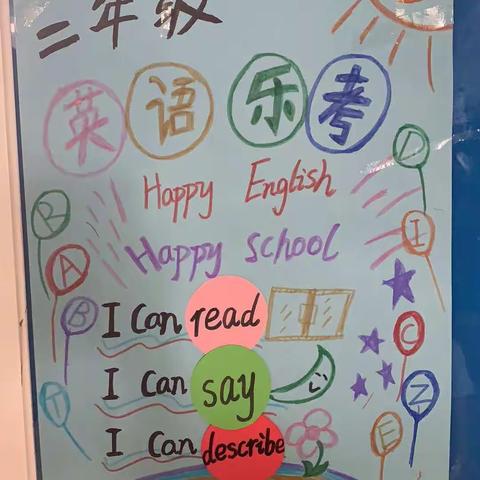 二年级
英语乐考
Happy English
Happy school
I Can read
I Can say
I Can describe
B
A
B
T
D
I
C
Z
E